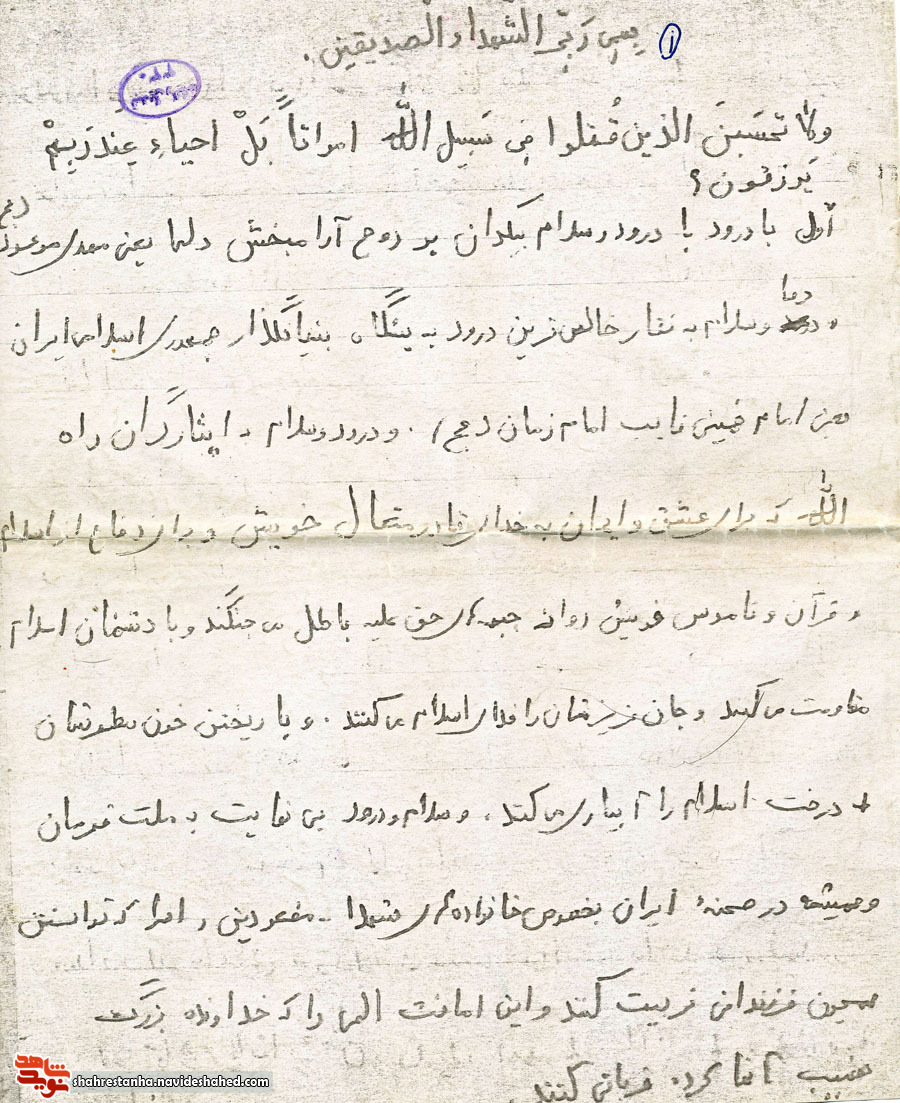 ۱
بسم رَبِّ الشهداء والصدیقین.
ولا تحسَبنَ الذین قُتلوا فِی سَبیل اللّٰه امواتاً بَلْ احیاءِ عِندَرَبِهمْ
یَرزقون؟
اول با درود با درود و سلام بیکران بر روح آرامبخش دلها یعنی مهدی موعود (عج)
و درود و سلام به نثار خالص ترین درود به پیشگاه بنیانگذار جمهوری اسلامی ایران
یعنی امام خمینی نایب امام زمان (عج). و درود و سلام به ایثارگران راه
اللّٰه که برای عشق و ایمان به خدای قادر متعال خویش و برای دفاع از اسلام
و قرآن و ناموس خویش روانه جبهه‌های حق علیه باطل می جنگند و با دشمنان اسلام
مقاومت می کنند و جان عزیزشان را فدای اسلام می کنند. و با ریختن خون مطهرشان
درخت اسلام را آبیاری می کند. و سلام و درود بی نهایت به ملت قهرمان
و همیشه در صحنهٔ ایران بخصوص خانواده‌های شهدا - مفقودین و اسرا که توانستن
همچون فرزندانی تربیت کنند و این امانت الهی را که خداونده بزرگ
نصیب آنها کرد. قربانی کنند.
نوید شاهد
shahrestanha.navideshahed.com